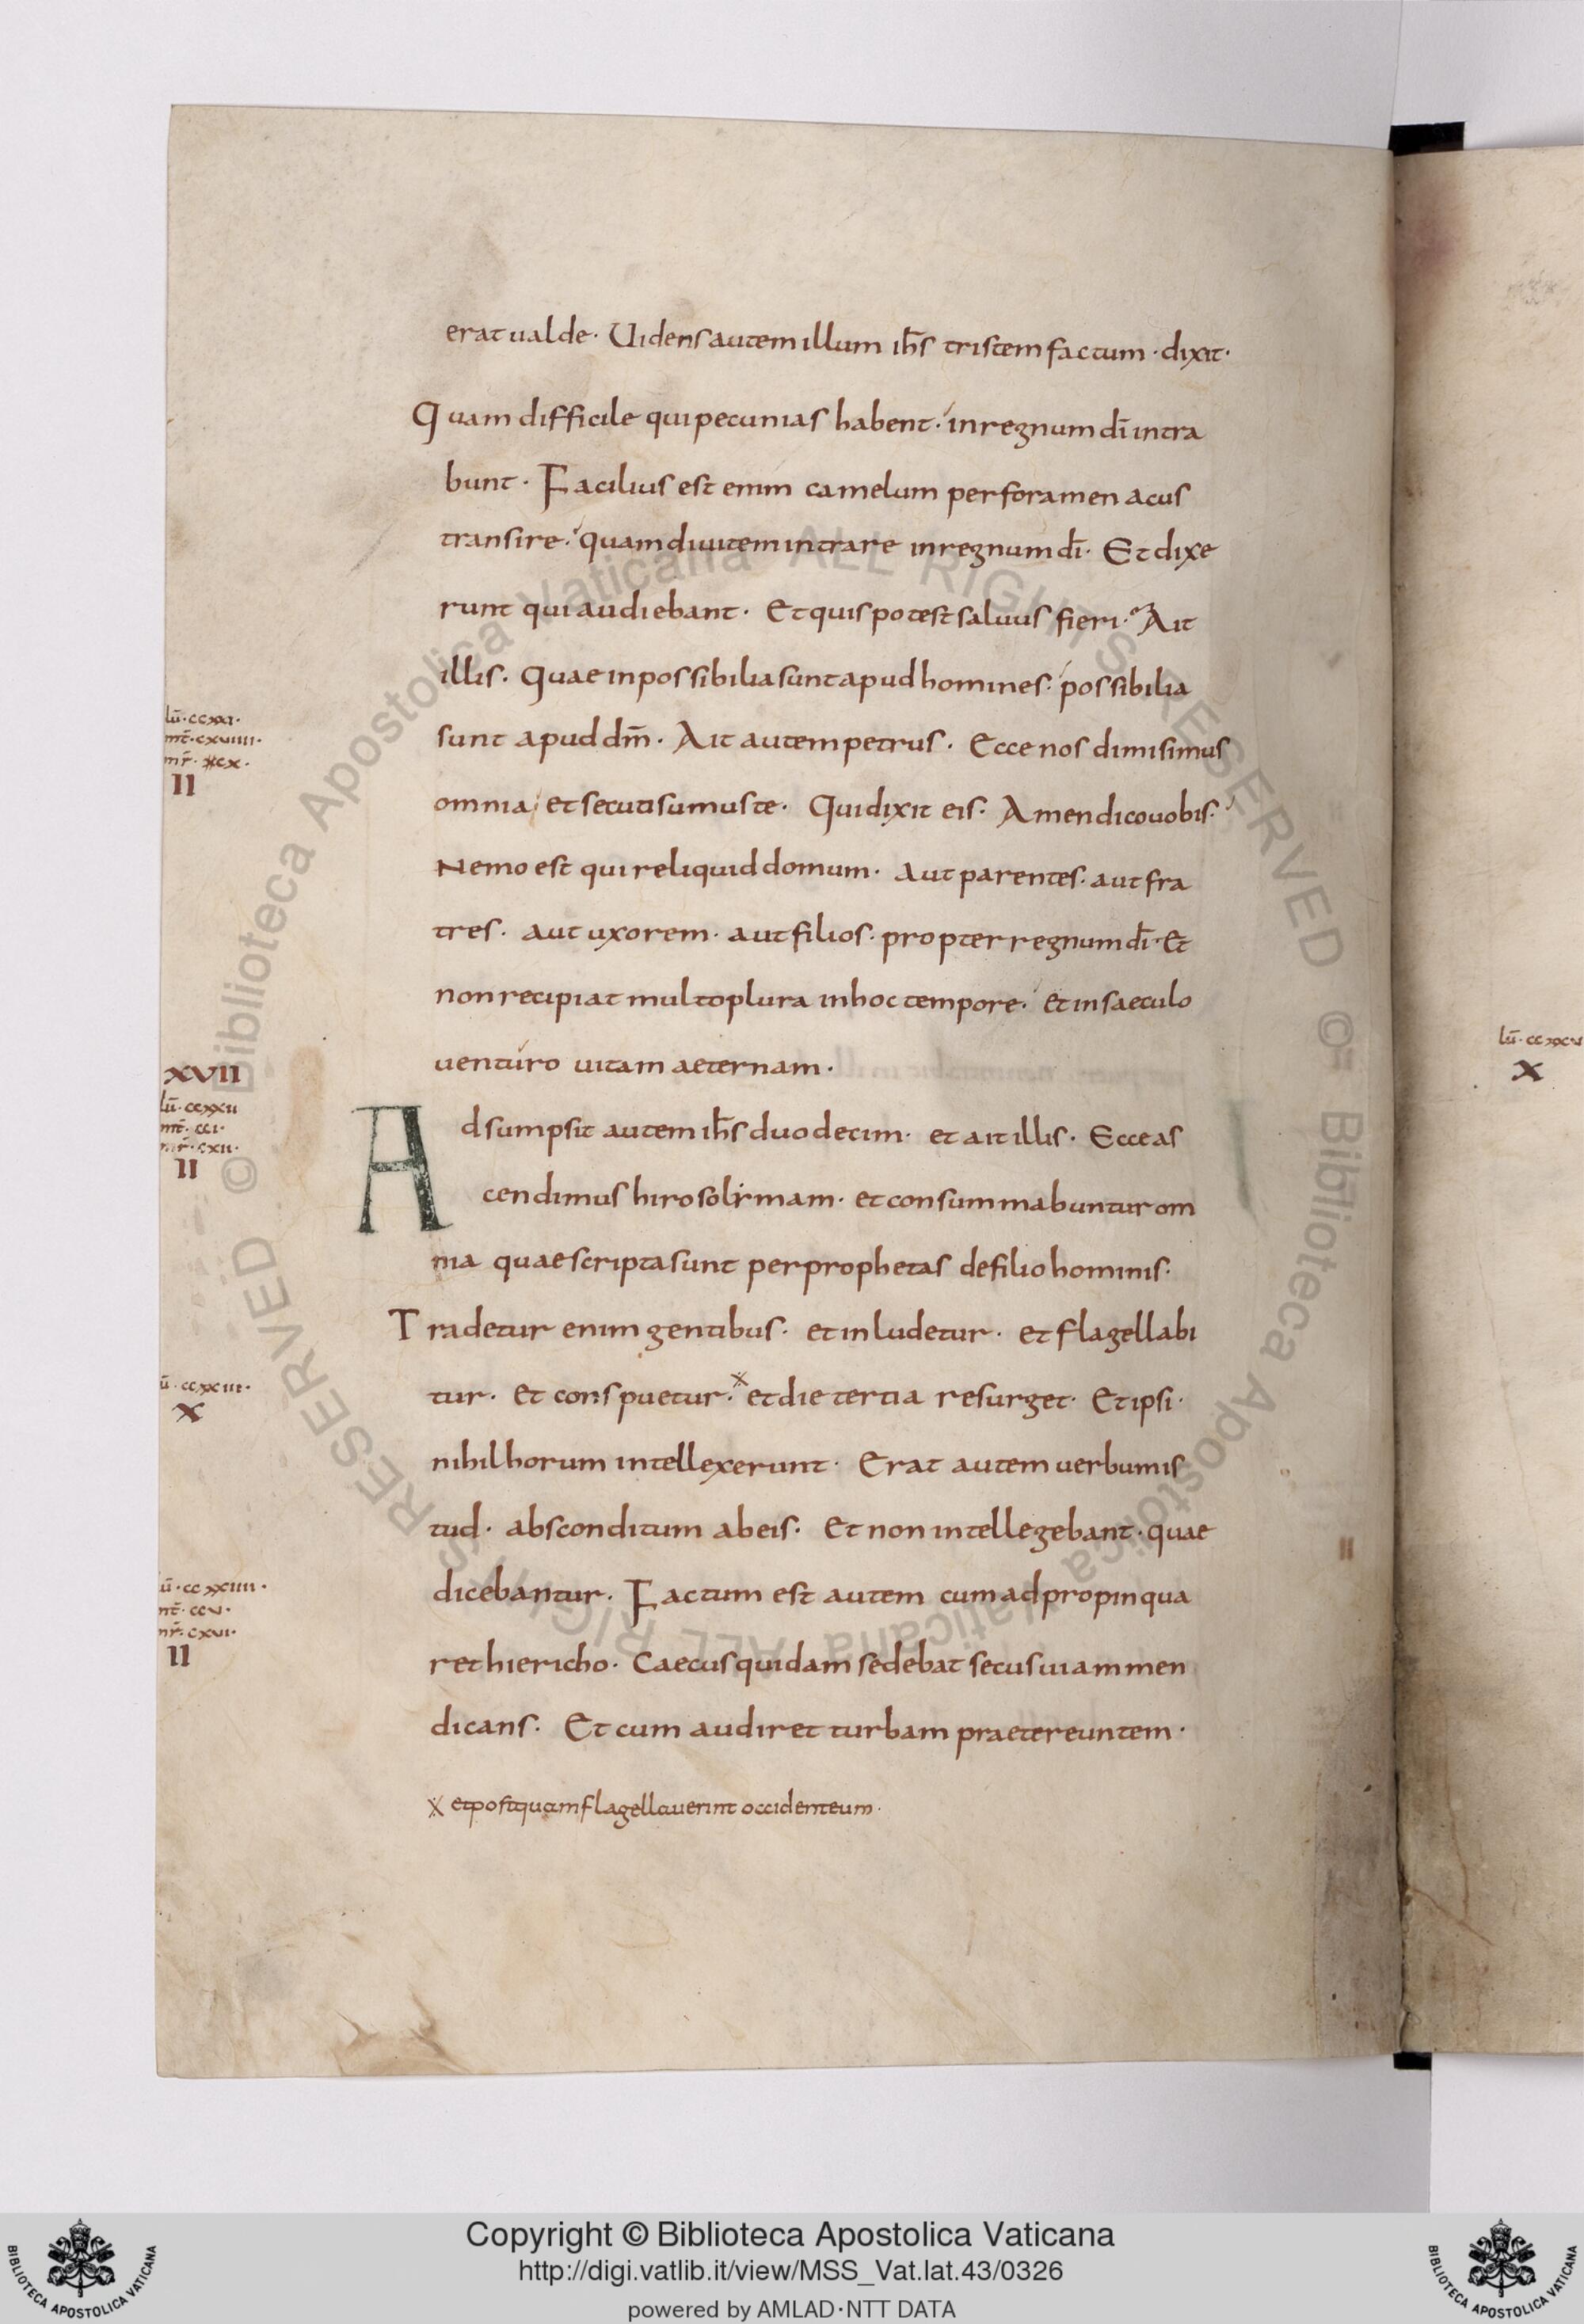 erat ualde · Uidens autem illum ihs̄ tristem factum · dixit ·
Quam difficile qui pecunias habent · in regnum dī intra
bunt · Facilius est enim camelum per foramen acus
transire · quam diuitem intrare in regnum dī · Et dixe
runt qui audiebant · Et quis potest saluus fieri · Ait
illis · Quae inpossibilia sunt apud homines · possibilia
sunt apud dm̄ · Ait autem petrus · Ecce nos dimisimus
omnia et secuti sumus te · Qui dixit eis · Amen dico uobis ·
Nemo est qui reliquid domum · aut parentes · aut fra
tres · aut uxorem · aut filios · propter regnum dī · Et
non recipiat multo plura in hoc tempore · et in saeculo
uenturo uitam aeternam ·
Adsumpsit autem ihs̄ duodecim · et ait illis · Ecce as
cendimus hirosolymam · et consummabuntur om
nia quae scripta sunt per prophetas de filio hominis ·
Tradetur enim gentibus · et inludetur · et flagellabi
tur · et conspuetur · x et die tertia resurget · Et ipsi ·
nihil horum intellexerunt · Erat autem uerbum is
tud · absconditum ab eis · Et non intellegebant · quae
dicebantur · Factum est autem cum adpropinqua
ret hiericho · Caecus quidam sedebat secus uiam men
dicans · Et cum audiret turbam praetereuntem ·
x et postquam flagellauerint occident eum ·
lū · ccxxi ·
mt̄ · cxcuiiii ·
mr̄ · cx ·
II
XVII
lū · ccxxii
mt̄ · cci ·
mr̄ · cxii ·
II
ū · ccxxiii ·
X
ū · ccxxiiii ·
mt̄ · ccu ·
mr̄ · cxui ·
II
lū · ccxxu
X
© Biblioteca Apostolica Vaticana ALL RIGHTS RESERVED
© Biblioteca Apostolica Vaticana ALL RIGHTS RESERVED
Copyright © Biblioteca Apostolica Vaticana
http://digi.vatlib.it/view/MSS_Vat.lat.43/0326
powered by AMLAD·NTT DATA
BIBLIOTECA APOSTOLICA VATICANA
BIBLIOTECA APOSTOLICA VATICANA